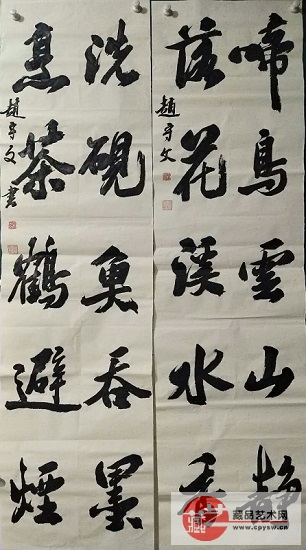 啼鳥雲山静
落花溪水香
趙守文
洗硯魚吞墨
烹茶鶴避煙
趙守文書
藏
藏品艺术网
www.cpysw.cn